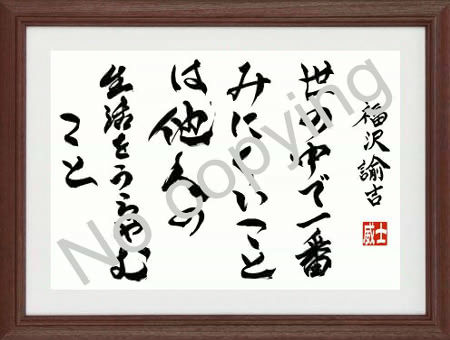 福沢諭吉
世の中で一番
みにくいこと
は他人の
生活をうらやむ
こと
威士
No copying